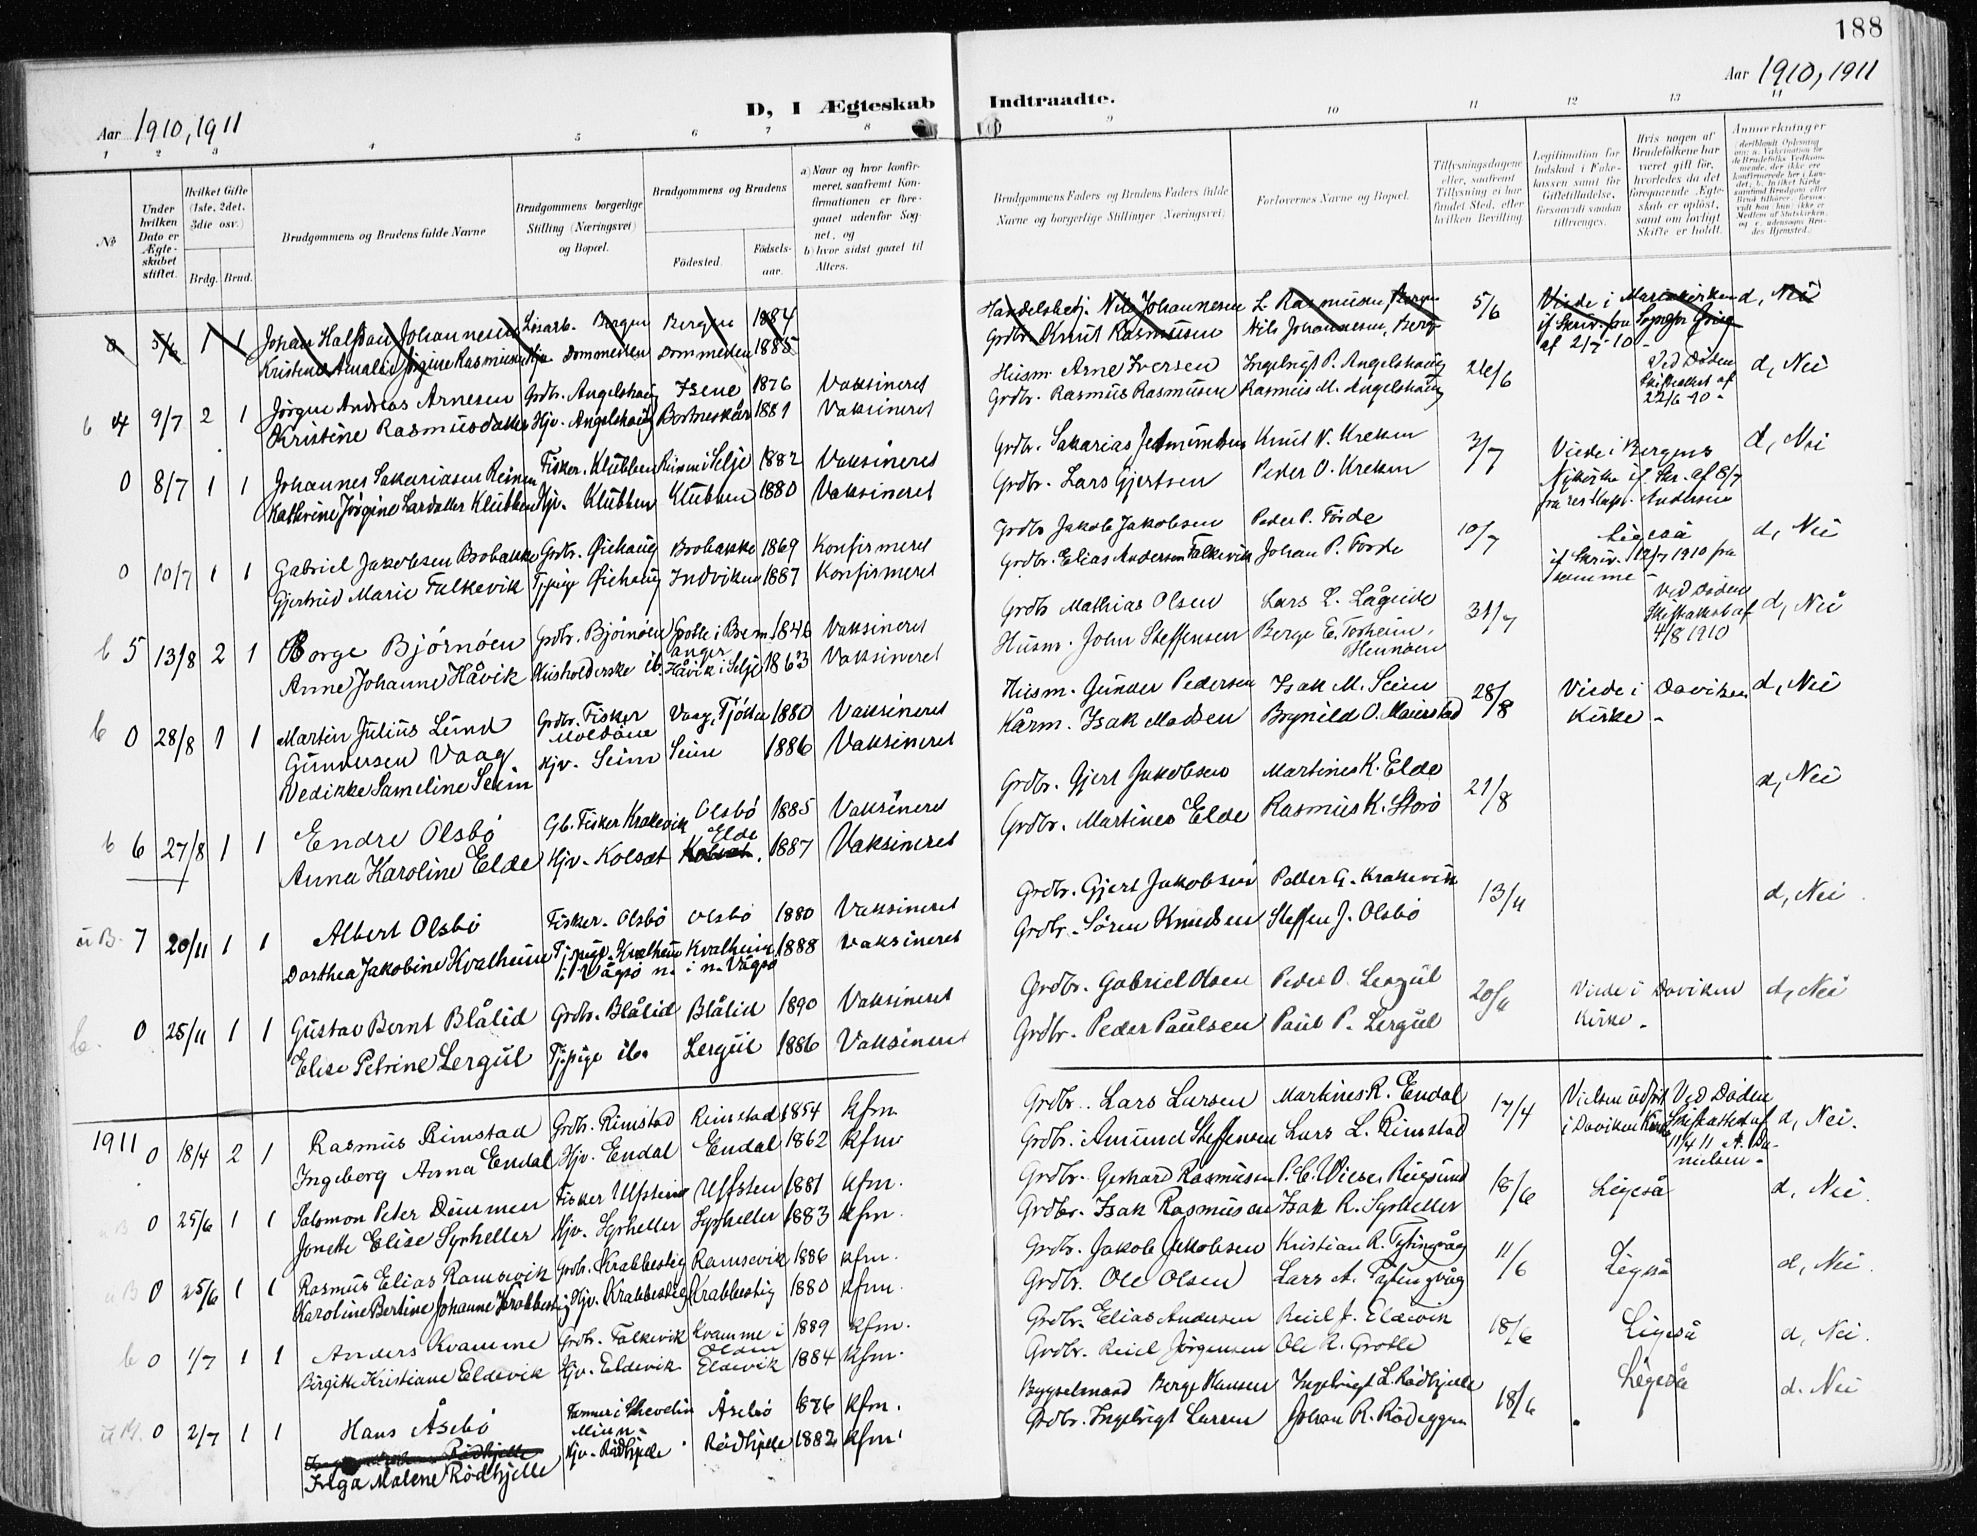 188
Aar 1910, 1911
D, I Ægteskab Indtraadte.
Aar 1910, 1911
1 2 3 4 5 6 7 8 9 10 11 12 13 14
No
Under hvilken Dato er Ægteskabet stiftet.
Hvilket Gifte (1ste, 2det, 3die osv.)
Brdg. Brud.
Brudgommens og Brudens fulde Navne
Brudgommens borgerlige Stilling (Næringsvei) og Bopæl.
Brudgommens og Brudens
Fødested.
Fødselsaar.
a) Naar og hvor konfirmeret, saafremt Konfirmationen er foregaaet udenfor Sognet, og
b) hvor sidst gaaet til Alters.
Brudgommens Faders og Brudens Faders fulde Navne og borgerlige Stillinger (Næringsvei)
Forlovernes Navne og Bopæl.
Tillysningsdagene eller, saafremt Tillysning ei har fundet Sted, efter hvilken Bevilling.
Legitimation for Indskud i Fakekassen samt for Giftetilladelse, forsaavidt saadan tiltrænges.
Hvis nogen af Brudefolkene har været gift før, hvorledes da det foregaaende Ægteskab er opløst, samt om lovligt Skifte er holdt.
Anmærkninger
0 3/6 1 1 Johan Halfdan Johannesen Løsarb. Bergen Bergen 1884 Handelsbetj. Nils Johannesen L. Rasmusen, Bergen 5/6 Viede i Mariakirken d, Nei
Kristine Amalie Jørgine Rasmusen Hjv Dommesten Dommesten 1885 Grdbr. Knut Rasmussen Nils Johannesen, Berg. if Skriv. fra Sognepr Grieg
af 2/7-10 -
b 4 9/7 2 1 Jørgen Andreas Arnesen Grdbr. Angelshaug Isene 1876 Vaksineret Husm. Arne Iversen Ingebrigt P. Angelshaug 26/6 Ved Døden d, Nei
Kristine Rasmusdatter Hjv. Angelshaug Bortneskår 1881 Vaksineret Grdbr. Rasmus Rasmussen Rasmus M. Angelshaug Skifteattest af
22/6 10 -
0 8/7 1 1 Johannes Sakariasen Reimen Fisker. Klubben Reimen i Selje 1882 Vaksineret Grdbr. Sakarias Jetmundsen Knut N. Kreken 3/7 Viede i Bergens d, Nei
Kathrine Jørgine Larsdatter Klubben Hjv. Klubben Klubben 1880 Vaksineret Grdbr. Lars Gjertsen Peder O. Kreken Nykirke if Skr. af 8/7
fra res Kap. Andersen
0 10/7 1 1 Gabriel Jakobsen Brobakke Grdbr. Øiehaug Brobakke 1869 Konfirmeret Grdbr Jakob Jakobsen Peder P. Førde 10/7 Ligeså d, Nei
Gjertrud Marie Falkevik Tjpige Øiehaug Indviken 1887 Konfirmeret Grdbr. Elias Andersen Falkevik Johan P. Førde if Skriv. 12/7 1910 fra
samme -
b 5 13/8 2 1 Borge Bjørnøen Grdbr. Bjørnøen Grotle i Bremanger 1846 Vaksineret Grdbr Mathias Olsen Lars L. Lågeide 31/7 Ved Døden d, Nei
Anne Johanne Håvik Husholderske ib. Håvik i Selje 1863 Vaksineret Husm. John Steffensen Berge E. Torheim, Hennøen Skifteattest af
4/8 1910
b 0 28/8 1 1 Martin Julius Lund Grdbr. Fisker Vaag, Tjøtta 1880 Vaksineret Husm. Gunder Pedersen Isak M. Seim 28/8 Viede i Daviken d, Nei
Gundersen Vaag Moldøen
Vedikke Sameline Seim Hjv. Seim Seim 1886 Vaksineret Kårm. Isak Madsen Brynild O. Maurstad Kirke -
b 6 27/8 1 1 Endre Olsbø Gb. Fisker Krakevik Olsbø 1885 Vaksineret Grdbr. Gjert Jakobsen Martines K. Elde 21/8 d, Nei
Anna Karoline Elde Hjv. Kolset Elde 1887 Vaksineret Grdbr. Martines Elde Rasmus K. Storø
u B. 7 20/11 1 1 Albert Olsbø Fisker. Olsbø Olsbø 1880 Vaksineret Grdbr. Gjert Jakobsen Petter G. Krakevik 13/11 d, Nei
Dorthea Jakobine Kvalheim Tjpige Kvalheim i Vågsø n. Kvalheim i n. Vågsø 1888 Vaksineret Grdbr. Søren Knudsen Steffen J. Olsbø
b. 0 25/11 1 1 Gustav Bernt Blålid Grdbr. Blålid Blålid 1890 Vaksineret Grdbr. Gabriel Olsen Peder O. Lergul 20/11 Viede i Daviken d, Nei
Elise Petrine Lergul Tjpige ib. Lergul 1886 Vaksineret Grdbr. Peder Paulsen Paul P. Lergul Kirke.
1911 0 18/4 2 1 Rasmus Rimstad Grdbr. Rimstad Rimstad 1854 kfm Grdbr. Lars Larsen Martines R. Endal 17/4 Vielsen udført Ved Døden d, Nei.
Ingeborg Anna Endal Hjv. Endal Endal 1862 kfm Grdbr. Amund Steffensen Lars L. Rimstad i Daviken Kirke Skifteattest af
11/4 11 A. Danielsen -
u B 0 25/6 1 1 Salomon Peter Dømmen Fisker Ulfsten Ulfsten 1881 kfm. Grdbr. Gerhard Rasmusen P. C. Wiese. Rugsund 18/6 Ligeså d, Nei.
Jonette Elise Syrheller Hjv. Syrheller Syrheller 1883 kfm. Grdbr. Isak Rasmusen Isak R. Syrheller
u B 0 25/6 1 1 Rasmus Elias Ramsevik Grdbr. Krabbestig Ramsevik 1886 kfm. Grdbr. Jakob Jakobsen Kristian R. Tytingvåg 11/6 Ligeså d, Nei.
Karoline Bertine Johanne Krabbestig Hjv. Krabbestig Krabbestig 1880 kfm. Grdbr. Ole Olsen Lars A. Tytingvåg
b 0 1/7 1 1 Anders Kvamme Grdbr. Falkevik Kvamme i Olden 1889 kfm. Grdbr. Elias Andersen Reiel J. Eldevik 18/6 Ligeså d, Nei.
Birgitte Kristiane Eldevik Hjv. Eldevik Eldevik 1884 kfm. Grdbr. Reiel Jørgensen Ole R. Grotle
u M. 0 2/7 1 1 Hans Åsebø Farmer i Åsebø 1876 kfm. Bygselmand Berge Hansen Ingebrigt L. Rødhjelle 18/6 Ligeså d. Nei
Minn.
Inga Malene Rødhjelle Hjv. Rødhjelle Rødhjelle 1882 kfm. Grdbr. Ingebrigt Larsen Johan R. Rødeggen